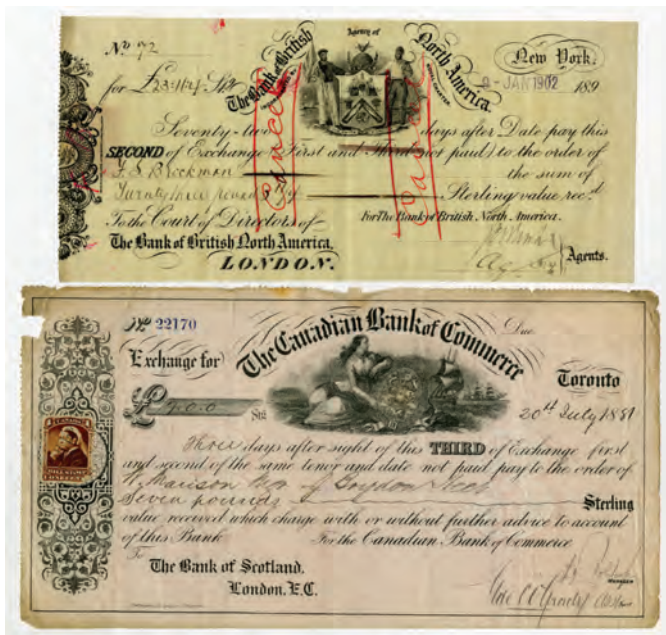 No 72
Agency of
The Bank of British North America
New York.
8-JAN 1902 189
for £23.11.4 Stg
Seventy-two days after Date pay this
SECOND of Exchange (First and Third not paid) to the order of
F. S. Brockman the sum of
Twenty three pounds Sterling value rec.d
To the Court of Directors of For The Bank of British North America.
The Bank of British North America,
LONDON.
Agents.
Cancelled
No 22170
The Canadian Bank of Commerce
Due
Exchange for
Toronto
£7.0.0 Stg
20th July 1881
Three days after sight of this THIRD of Exchange first
and second of the same tenor and date not paid pay to the order of
Seven pounds Sterling
value received which charge with or without further advice to account
of this Bank For the Canadian Bank of Commerce
To
The Bank of Scotland.
London. E.C.
MANAGER
CANADA
BILL STAMP